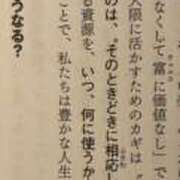 なくして富に価値なし」で
大限に活かすためのカギは、「
のは、“そのときどきに相応し
る資源を、いつ、何に使うか
ことで、私たちは豊かな人生
うなる？